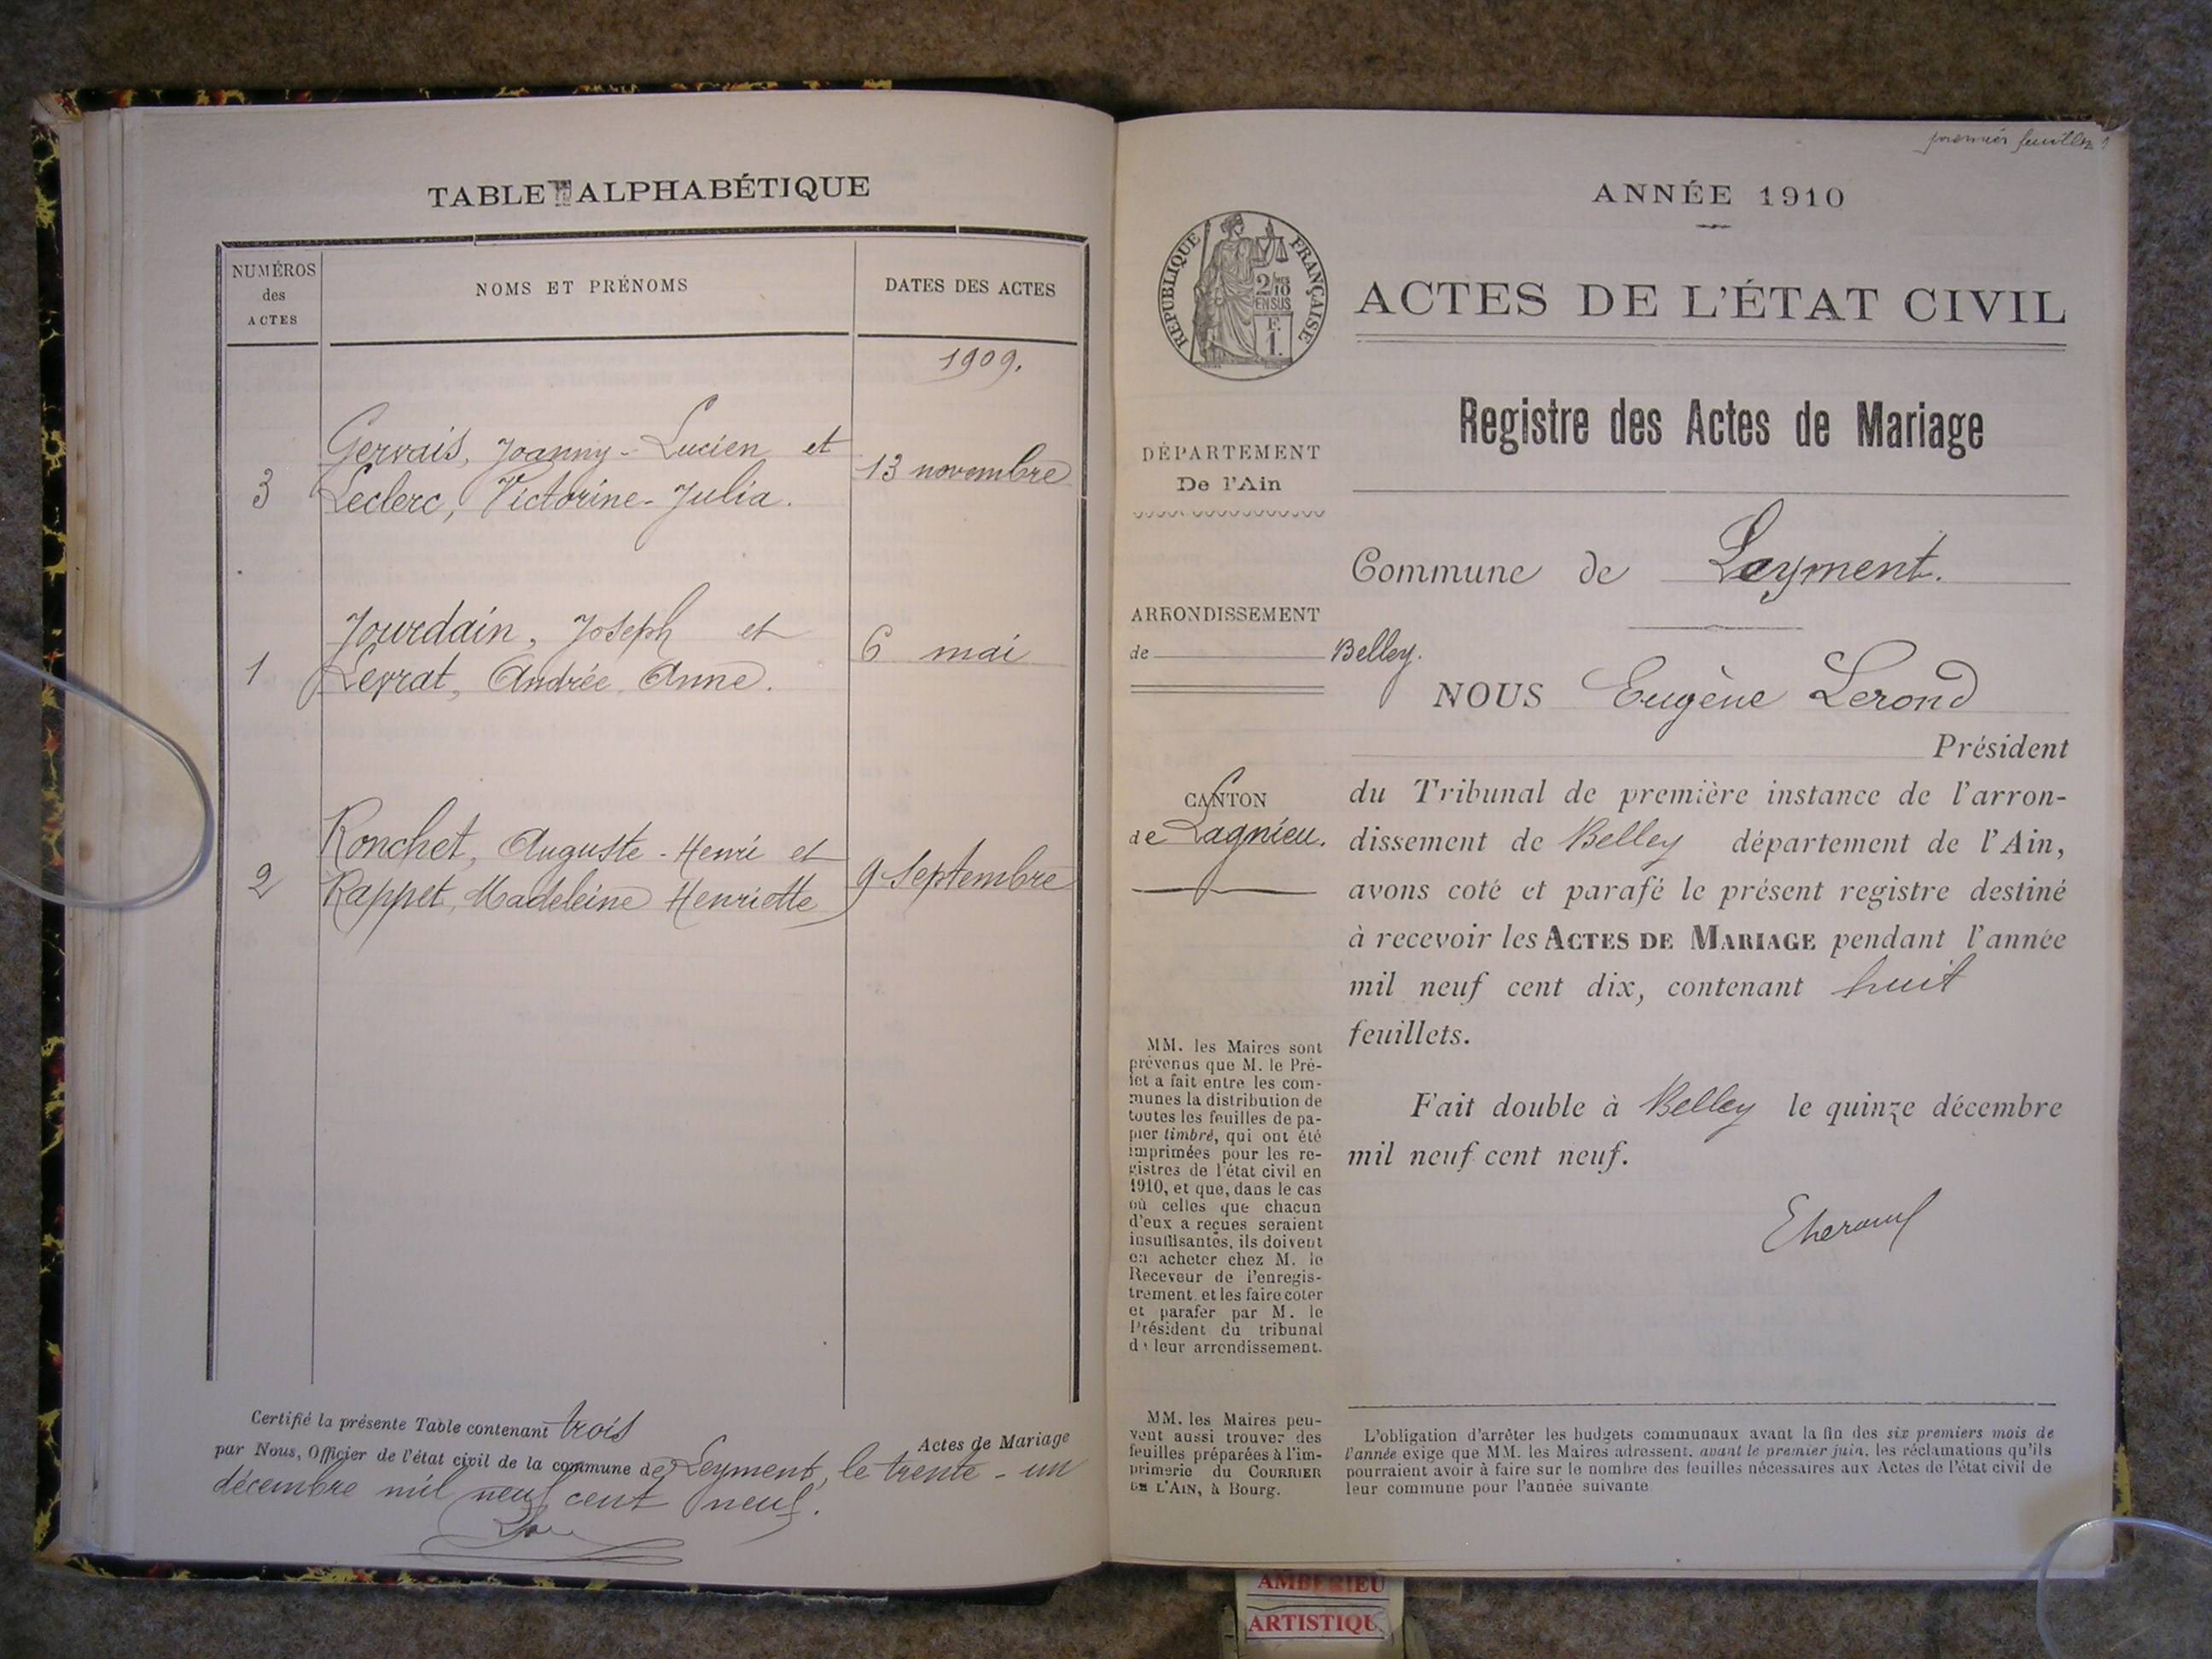 TABLE ALPHABÉTIQUE
NUMÉROS
des
ACTES
NOMS ET PRÉNOMS
DATES DES ACTES
1909.
Gervais, Joanny-Lucien et
3 Leclerc, Victorine-Julia. 13 novembre
Jourdain, Joseph et
1 Levrat, Andrée Anne. 6 mai
Ronchet, Auguste-Henri et
2 Rappet, Madeleine Henriette 9 Septembre
Certifié la présente Table contenant trois Actes de Mariage
par Nous, Officier de l'état civil de la commune de Leyment, le trente-un
décembre mil neuf cent neuf.
premier feuillet
ANNÉE 1910
RÉPUBLIQUE FRANÇAISE
2/10
EN SUS
F.
1.
ACTES DE L'ÉTAT CIVIL
Registre des Actes de Mariage
DÉPARTEMENT
De l'Ain
Commune de Leyment.
ARRONDISSEMENT
de Belley.
NOUS Eugène Lerond
Président
CANTON
de Lagnieu.
du Tribunal de première instance de l'arron-
dissement de Belley département de l'Ain,
avons coté et parafé le présent registre destiné
à recevoir les ACTES DE MARIAGE pendant l'année
mil neuf cent dix, contenant huit
feuillets.
Fait double à Belley le quinze décembre
mil neuf cent neuf.
MM. les Maires sont
prévenus que M. le Pré-
fet a fait entre les com-
munes la distribution de
toutes les feuilles de pa-
pier timbré, qui ont été
imprimées pour les re-
gistres de l'état civil en
1910, et que, dans le cas
où celles que chacun
d'eux a reçues seraient
insuffisantes, ils doivent
en acheter chez M. le
Receveur de l'enregis-
trement, et les faire coter
et parafer par M. le
Président du tribunal
de leur arrondissement.
MM. les Maires peu-
vent aussi trouver des
feuilles préparées à l'im-
primerie du COURRIER
DE L'AIN, à Bourg.
L'obligation d'arrêter les budgets communaux avant la fin des six premiers mois de
l'année exige que MM. les Maires adressent, avant le premier juin, les réclamations qu'ils
pourraient avoir à faire sur le nombre des feuilles nécessaires aux Actes de l'état civil de
leur commune pour l'année suivante.
AMBERIEU
ARTISTIQU